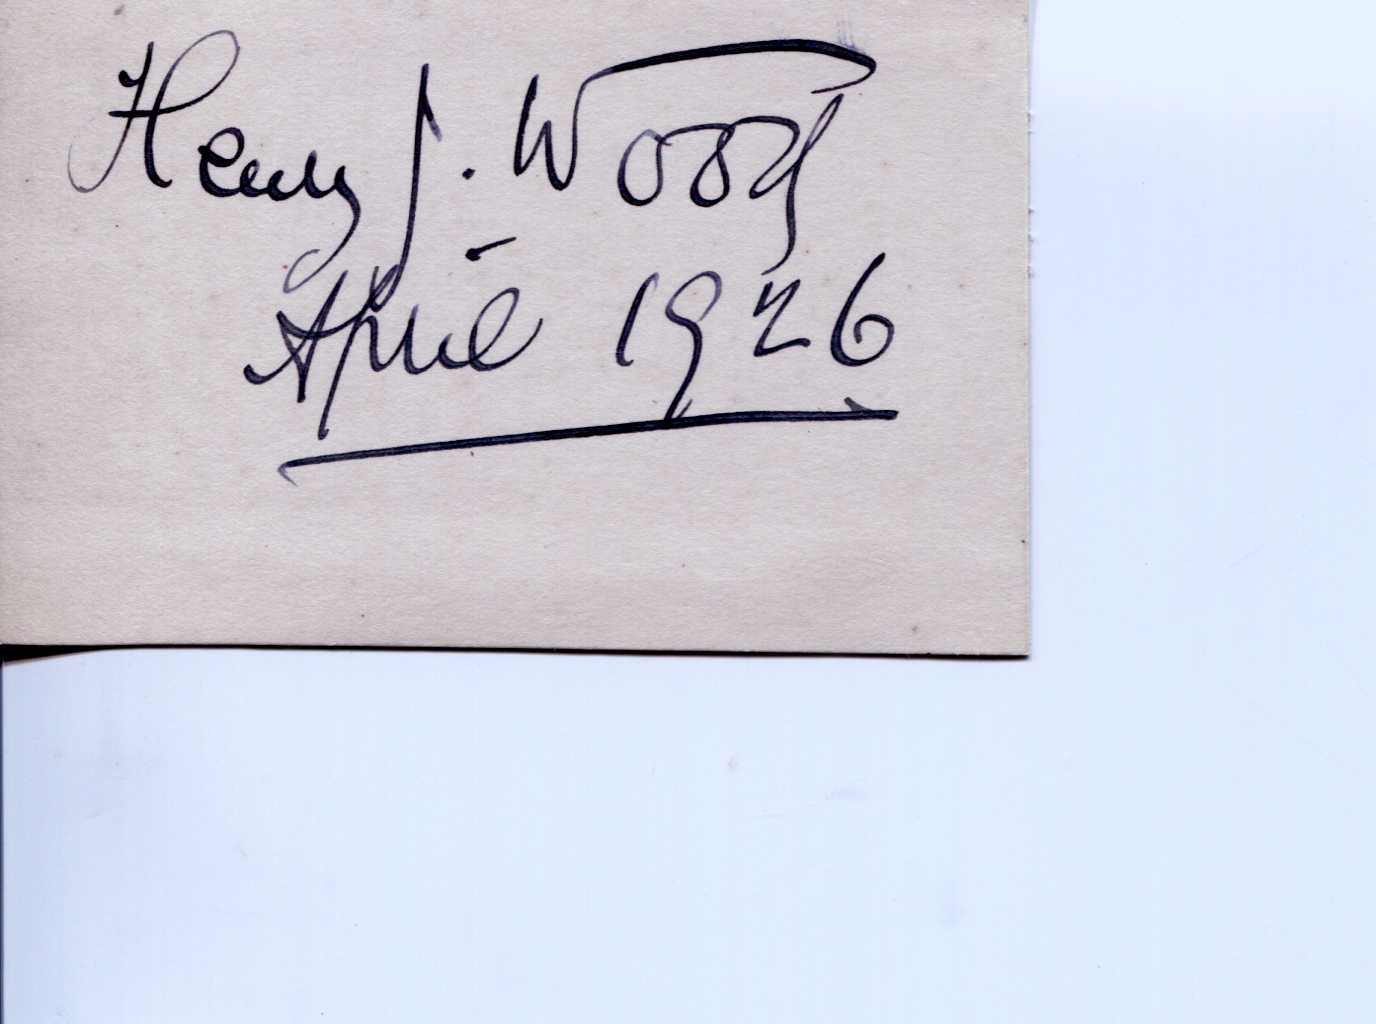 Henry J. Wood
April 1926